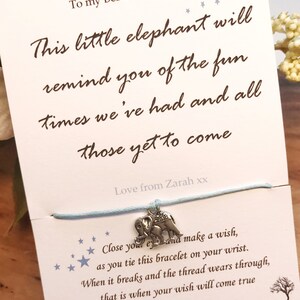 To my be
This little elephant will
remind you of the fun
times we've had and all
those yet to come
Love from Zarah xx
Close your eyes and make a wish,
as you tie this bracelet on your wrist.
When it breaks and the thread wears through,
that is when your wish will come true